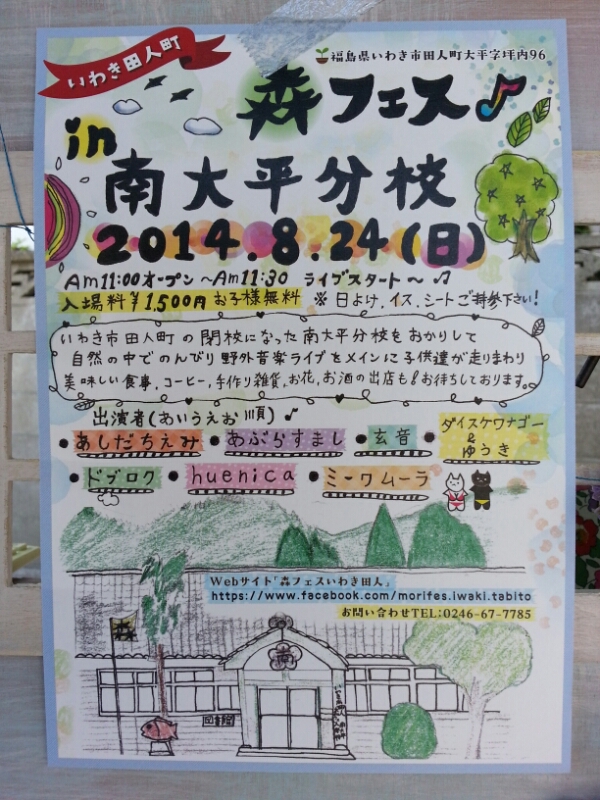 いわき田人町
福島県いわき市田人町大平字坪内96
森フェス♪
in
南大平分校
2014.8.24(日)
Am11:00オープン〜Am11:30 ライブスタート〜♫
入場料¥1,500円 お子様無料 ※日よけ、イス、シートご持参下さい!
いわき市田人町の閉校になった南大平分校をおかりして
自然の中でのんびり野外音楽ライブをメインに子供達が走りまわり
美味しい食事、コーヒー、手作り雑貨、お花、お酒の出店も!お待ちしております。
出演者(あいうえお順)♪
●あしだちえみ ●あぶらすまし ●玄音 ●ダイスケワナゴー
&
ゆうき
●ドブロク ●huenica ●ミーワムーラ
Webサイト「森フェスいわき田人」
https://www.facebook.com/morifes.iwaki.tabito
お問い合わせTEL:0246-67-7785
森
南
図書館